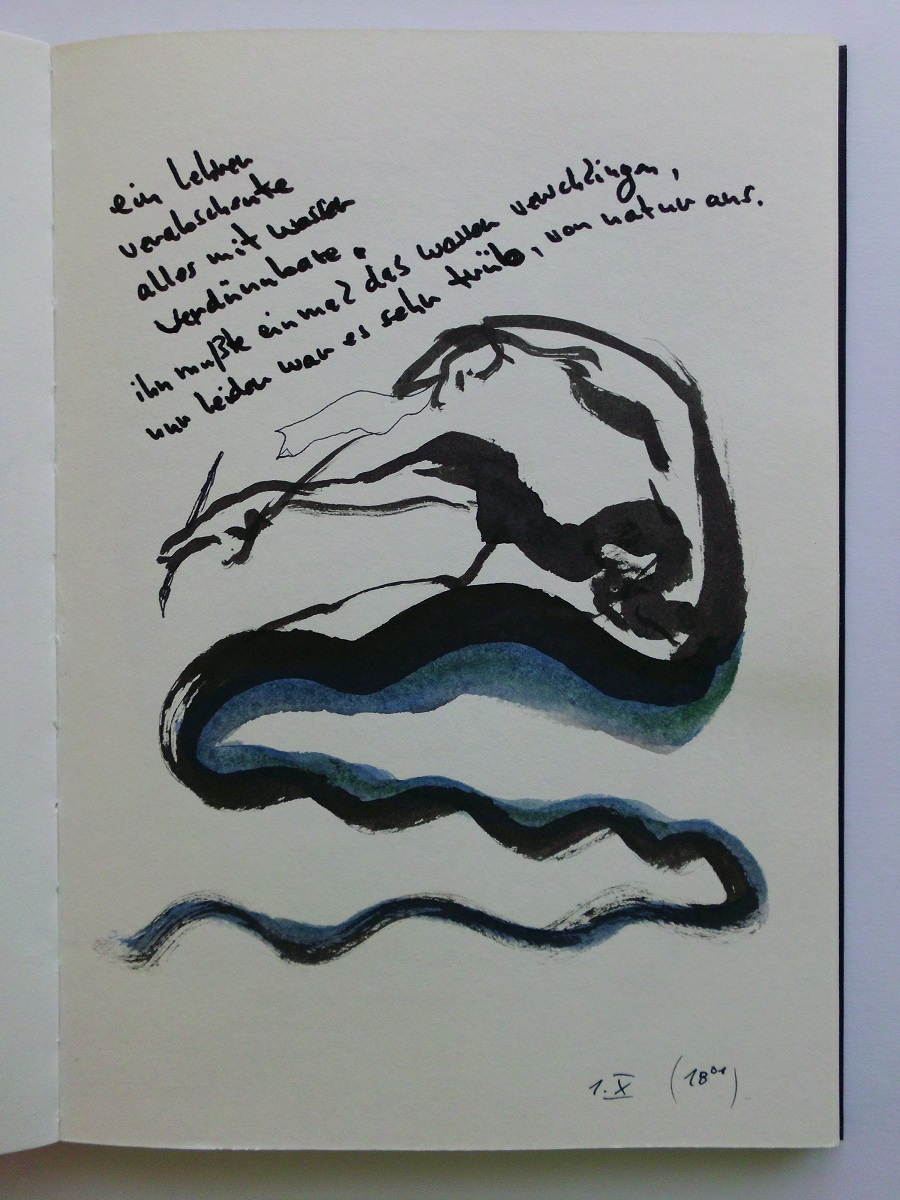 ein lehrer
verabscheute
alles mit wasser
verdünnbare.
ihn mußte einmal das wasser verschlingen,
nur leider war es sehr trüb, von natur aus.
1.X (18⁰⁰)